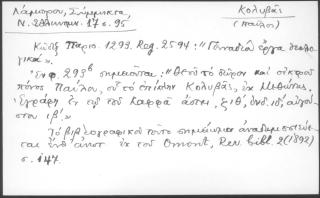 Λάμπρου, Σύμμικτα,
Ν. Ἑλληνομν. 17 σ. 95
Κολυβᾶς
(Παῦλος)
Κῶδιξ Παρισ. 1293. Reg. 2594: "Γενναδίου ἔργα θεολο-
γικά".
Ἐν φ. 293β σημειοῦται: "Θεοῦ τὸ δῶρον καὶ οἰκτροῦ
πόνος Παύλου, οὗ τὸ ἐπίκλην Κολυβᾶς, ἐκ Μεθώνης.
Ἐγράφη ἐν τῷ τοῦ Καφφᾶ ἄστει, ἰνδ. αὐγού-
στου ιβ'"
Τὸ βιβλιογραφικὸν τοῦτο σημείωμα ἀναδημοσιεύε-
ται ἐκ τοῦ Omont, Rev. bibl. 2 (1892)
σ. 147